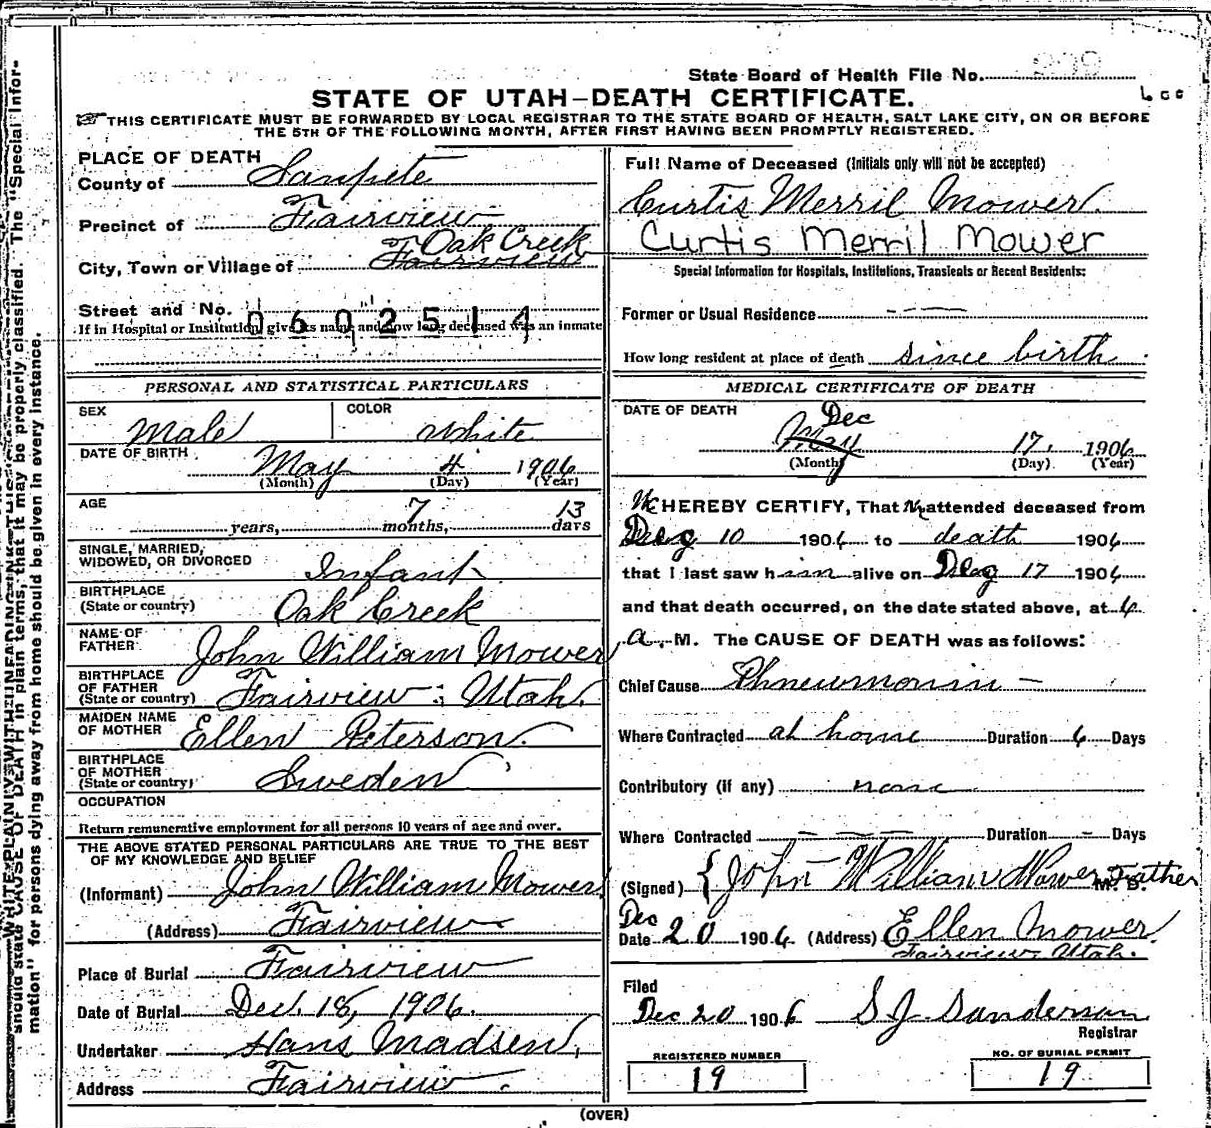 State Board of Health File No.
STATE OF UTAH—DEATH CERTIFICATE.
THIS CERTIFICATE MUST BE FORWARDED BY LOCAL REGISTRAR TO THE STATE BOARD OF HEALTH, SALT LAKE CITY, ON OR BEFORE
THE 5TH OF THE FOLLOWING MONTH, AFTER FIRST HAVING BEEN PROMPTLY REGISTERED.
PLACE OF DEATH
County of Sanpete
Precinct of Fairview
Oak Creek
City, Town or Village of Fairview
Street and No. 0602514
If in Hospital or Institution give its name and how long deceased was an inmate
PERSONAL AND STATISTICAL PARTICULARS
SEX Male COLOR White
DATE OF BIRTH May 4 1906
(Month) (Day) (Year)
AGE years, 7 months, 13 days
SINGLE, MARRIED,
WIDOWED, OR DIVORCED Infant
BIRTHPLACE
(State or country) Oak Creek
NAME OF
FATHER John William Mower
BIRTHPLACE
OF FATHER
(State or country) Fairview; Utah.
MAIDEN NAME
OF MOTHER Ellen Peterson.
BIRTHPLACE
OF MOTHER
(State or country) Sweden
OCCUPATION
Return remunerative employment for all persons 10 years of age and over.
THE ABOVE STATED PERSONAL PARTICULARS ARE TRUE TO THE BEST
OF MY KNOWLEDGE AND BELIEF
(Informant) John William Mower
(Address) Fairview
Place of Burial Fairview
Date of Burial Dec. 18, 1906.
Undertaker Hans Madsen,
Address Fairview.
Full Name of Deceased (Initials only will not be accepted)
Curtis Merril Mower.
Curtis Merril Mower
Special Information for Hospitals, Institutions, Transients or Recent Residents:
Former or Usual Residence
How long resident at place of death since birth
MEDICAL CERTIFICATE OF DEATH
DATE OF DEATH Dec
May 17, 1906
(Month) (Day) (Year)
We HEREBY CERTIFY, That we attended deceased from
Dec 10 1906 to death 1906
that I last saw him alive on Dec 17 1906
and that death occurred, on the date stated above, at 6
a. M. The CAUSE OF DEATH was as follows:
Chief Cause Phneumonin
Where Contracted at home Duration 6 Days
Contributory (if any) none
Where Contracted Duration Days
(Signed) John William Mower Father M. D.
Dec
Date 20 1906 (Address) Ellen Mower.
Fairview, Utah.
Filed
Dec 20 1906 S J Sanderson
Registrar
REGISTERED NUMBER
19
NO. OF BURIAL PERMIT
19
(OVER)
should state CAUSE OF DEATH in plain terms, that it may be properly classified. The "Special Infor-
mation" for persons dying away from home should be given in every instance.